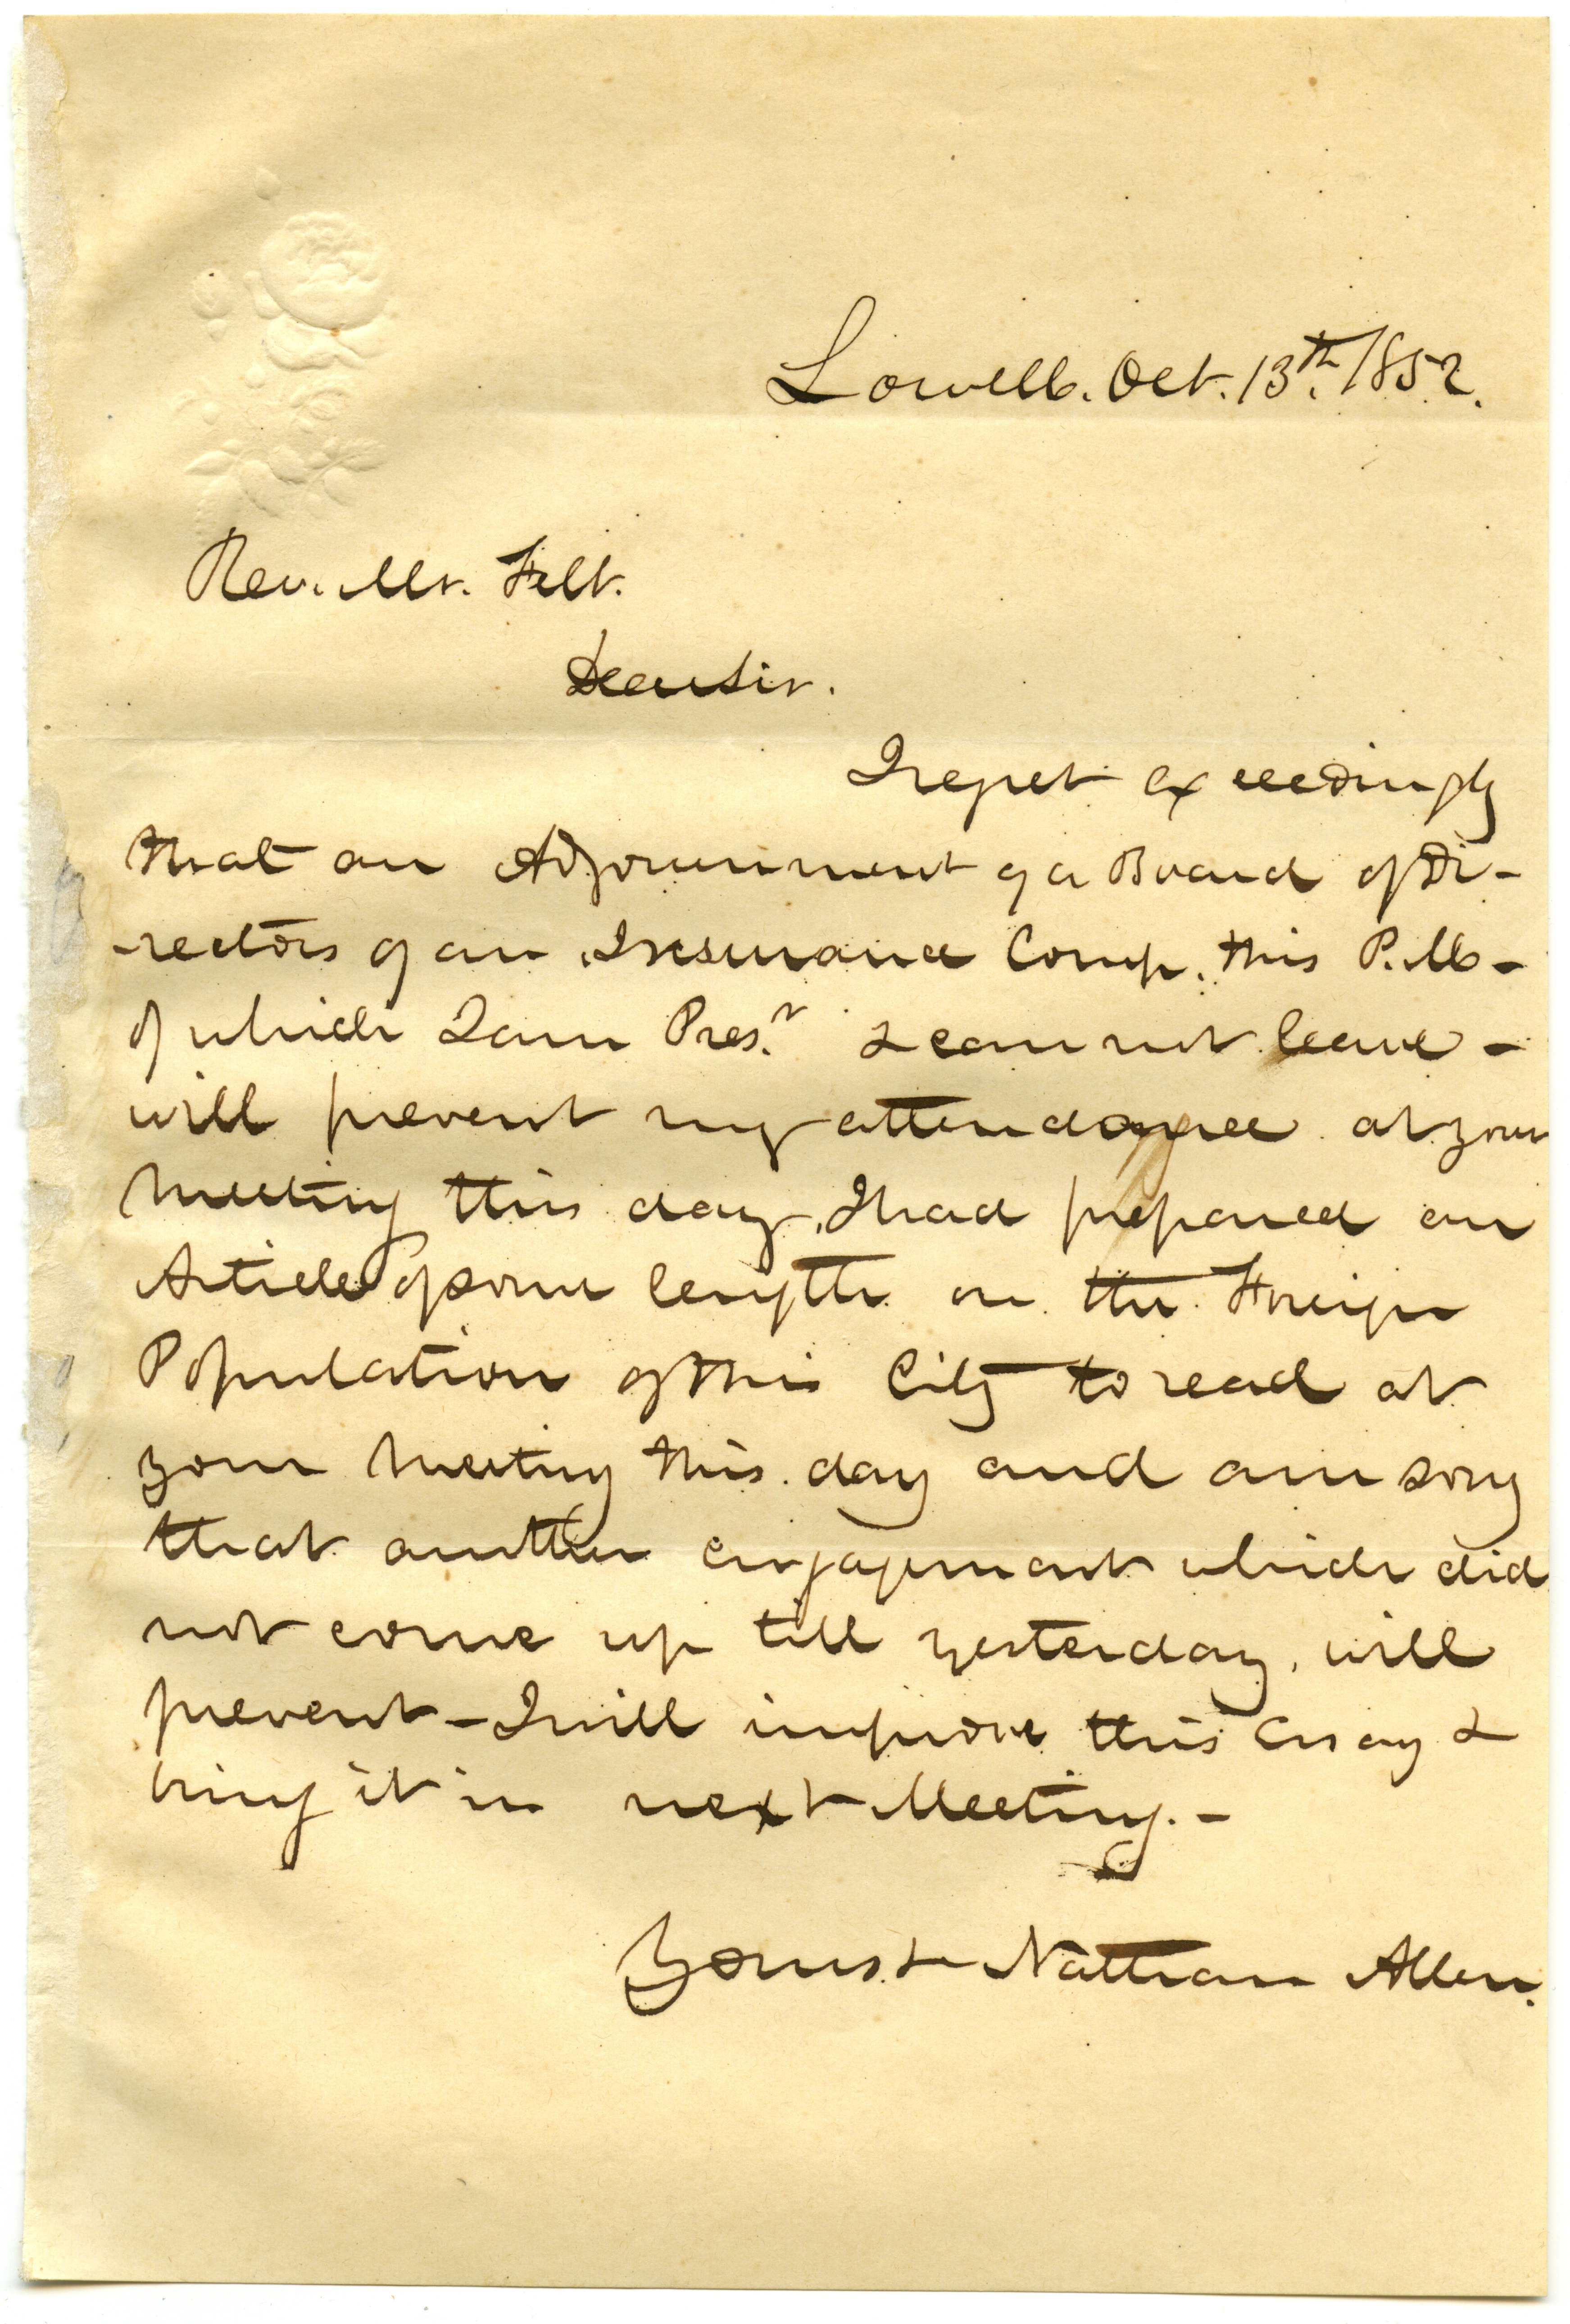 Lowell. Oct. 13th. 1852.
Rev. Mr. Felt.
Dear Sir.
I regret exceedingly
that an Adjournment of a Board of Di-
-rectors of an Insurance Comp. this P.M -
of which I am Pres.t & can not leave -
will prevent my attendance at your
meeting this day. I had prepared an
Article of some length on the Foreign
Population of this City to read at
your meeting this day and am sorry
that another engagement which did
not come up till yesterday, will
prevent - I will improve this Essay &
bring it in next Meeting. -
Yours &c Nathan Allen.